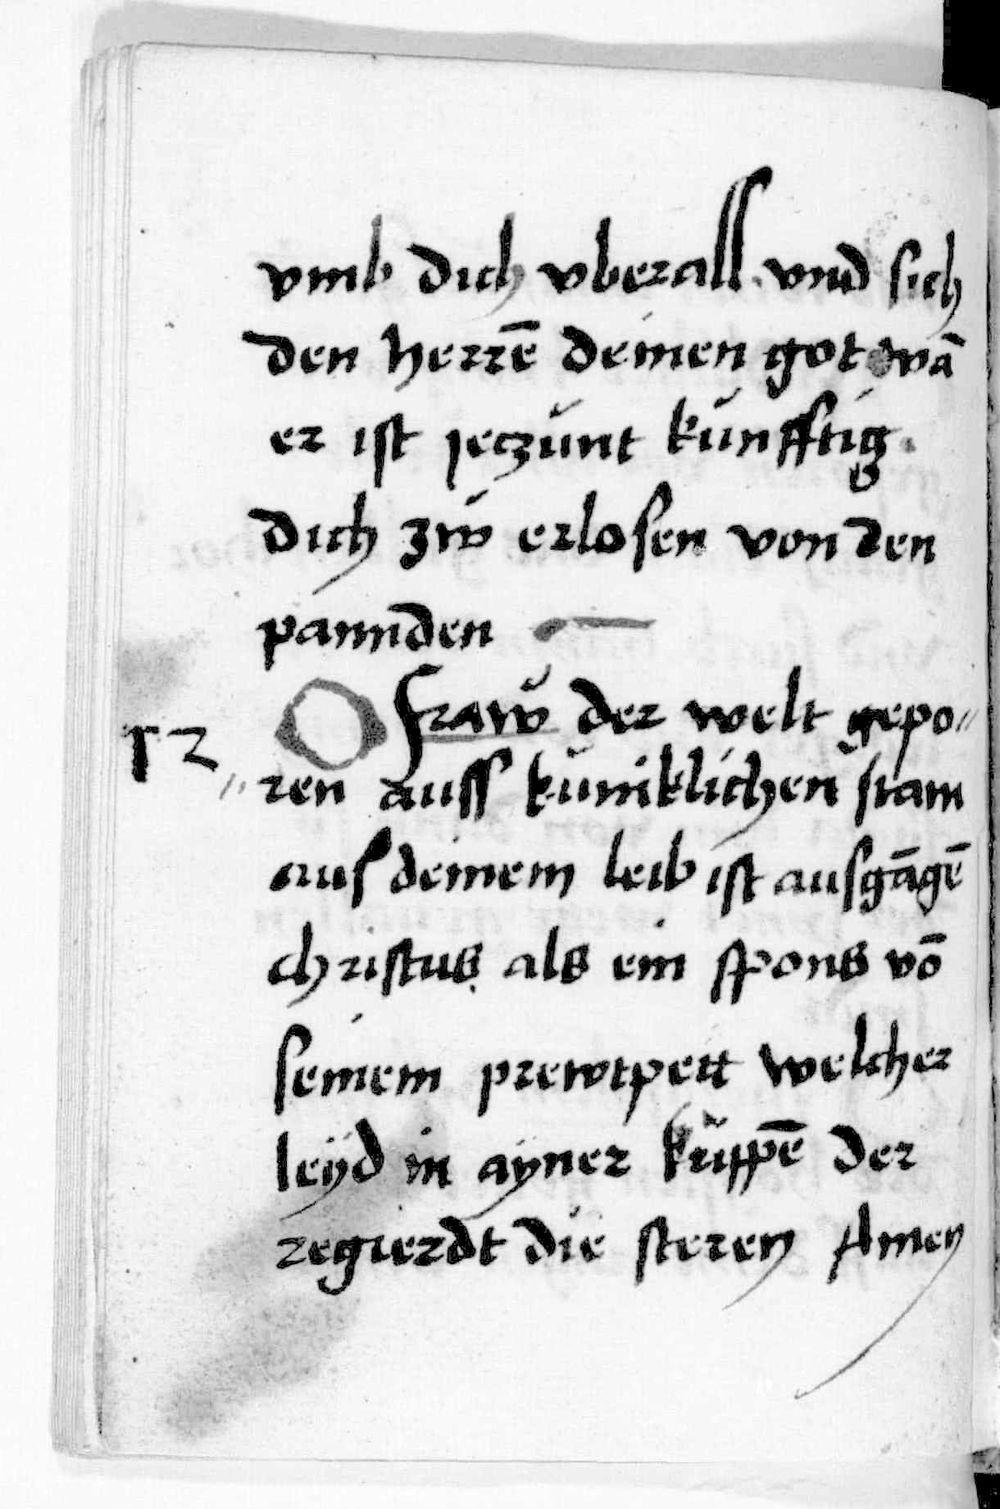 vmb dich vberall. vnd sich
den herrē deinen got wā
er ist ieczŭnt kŭnfftig.
dich zw̆ erlosen von den
pannden
O fraw̆ der welt gepo„
12
„ren auss kŭniklichen stam
aus deinem leib ist ausgāgē
christus als ein spons vō
seinem prewtpett welcher
leÿd in aÿner krippē der
regierdt die steren Amen